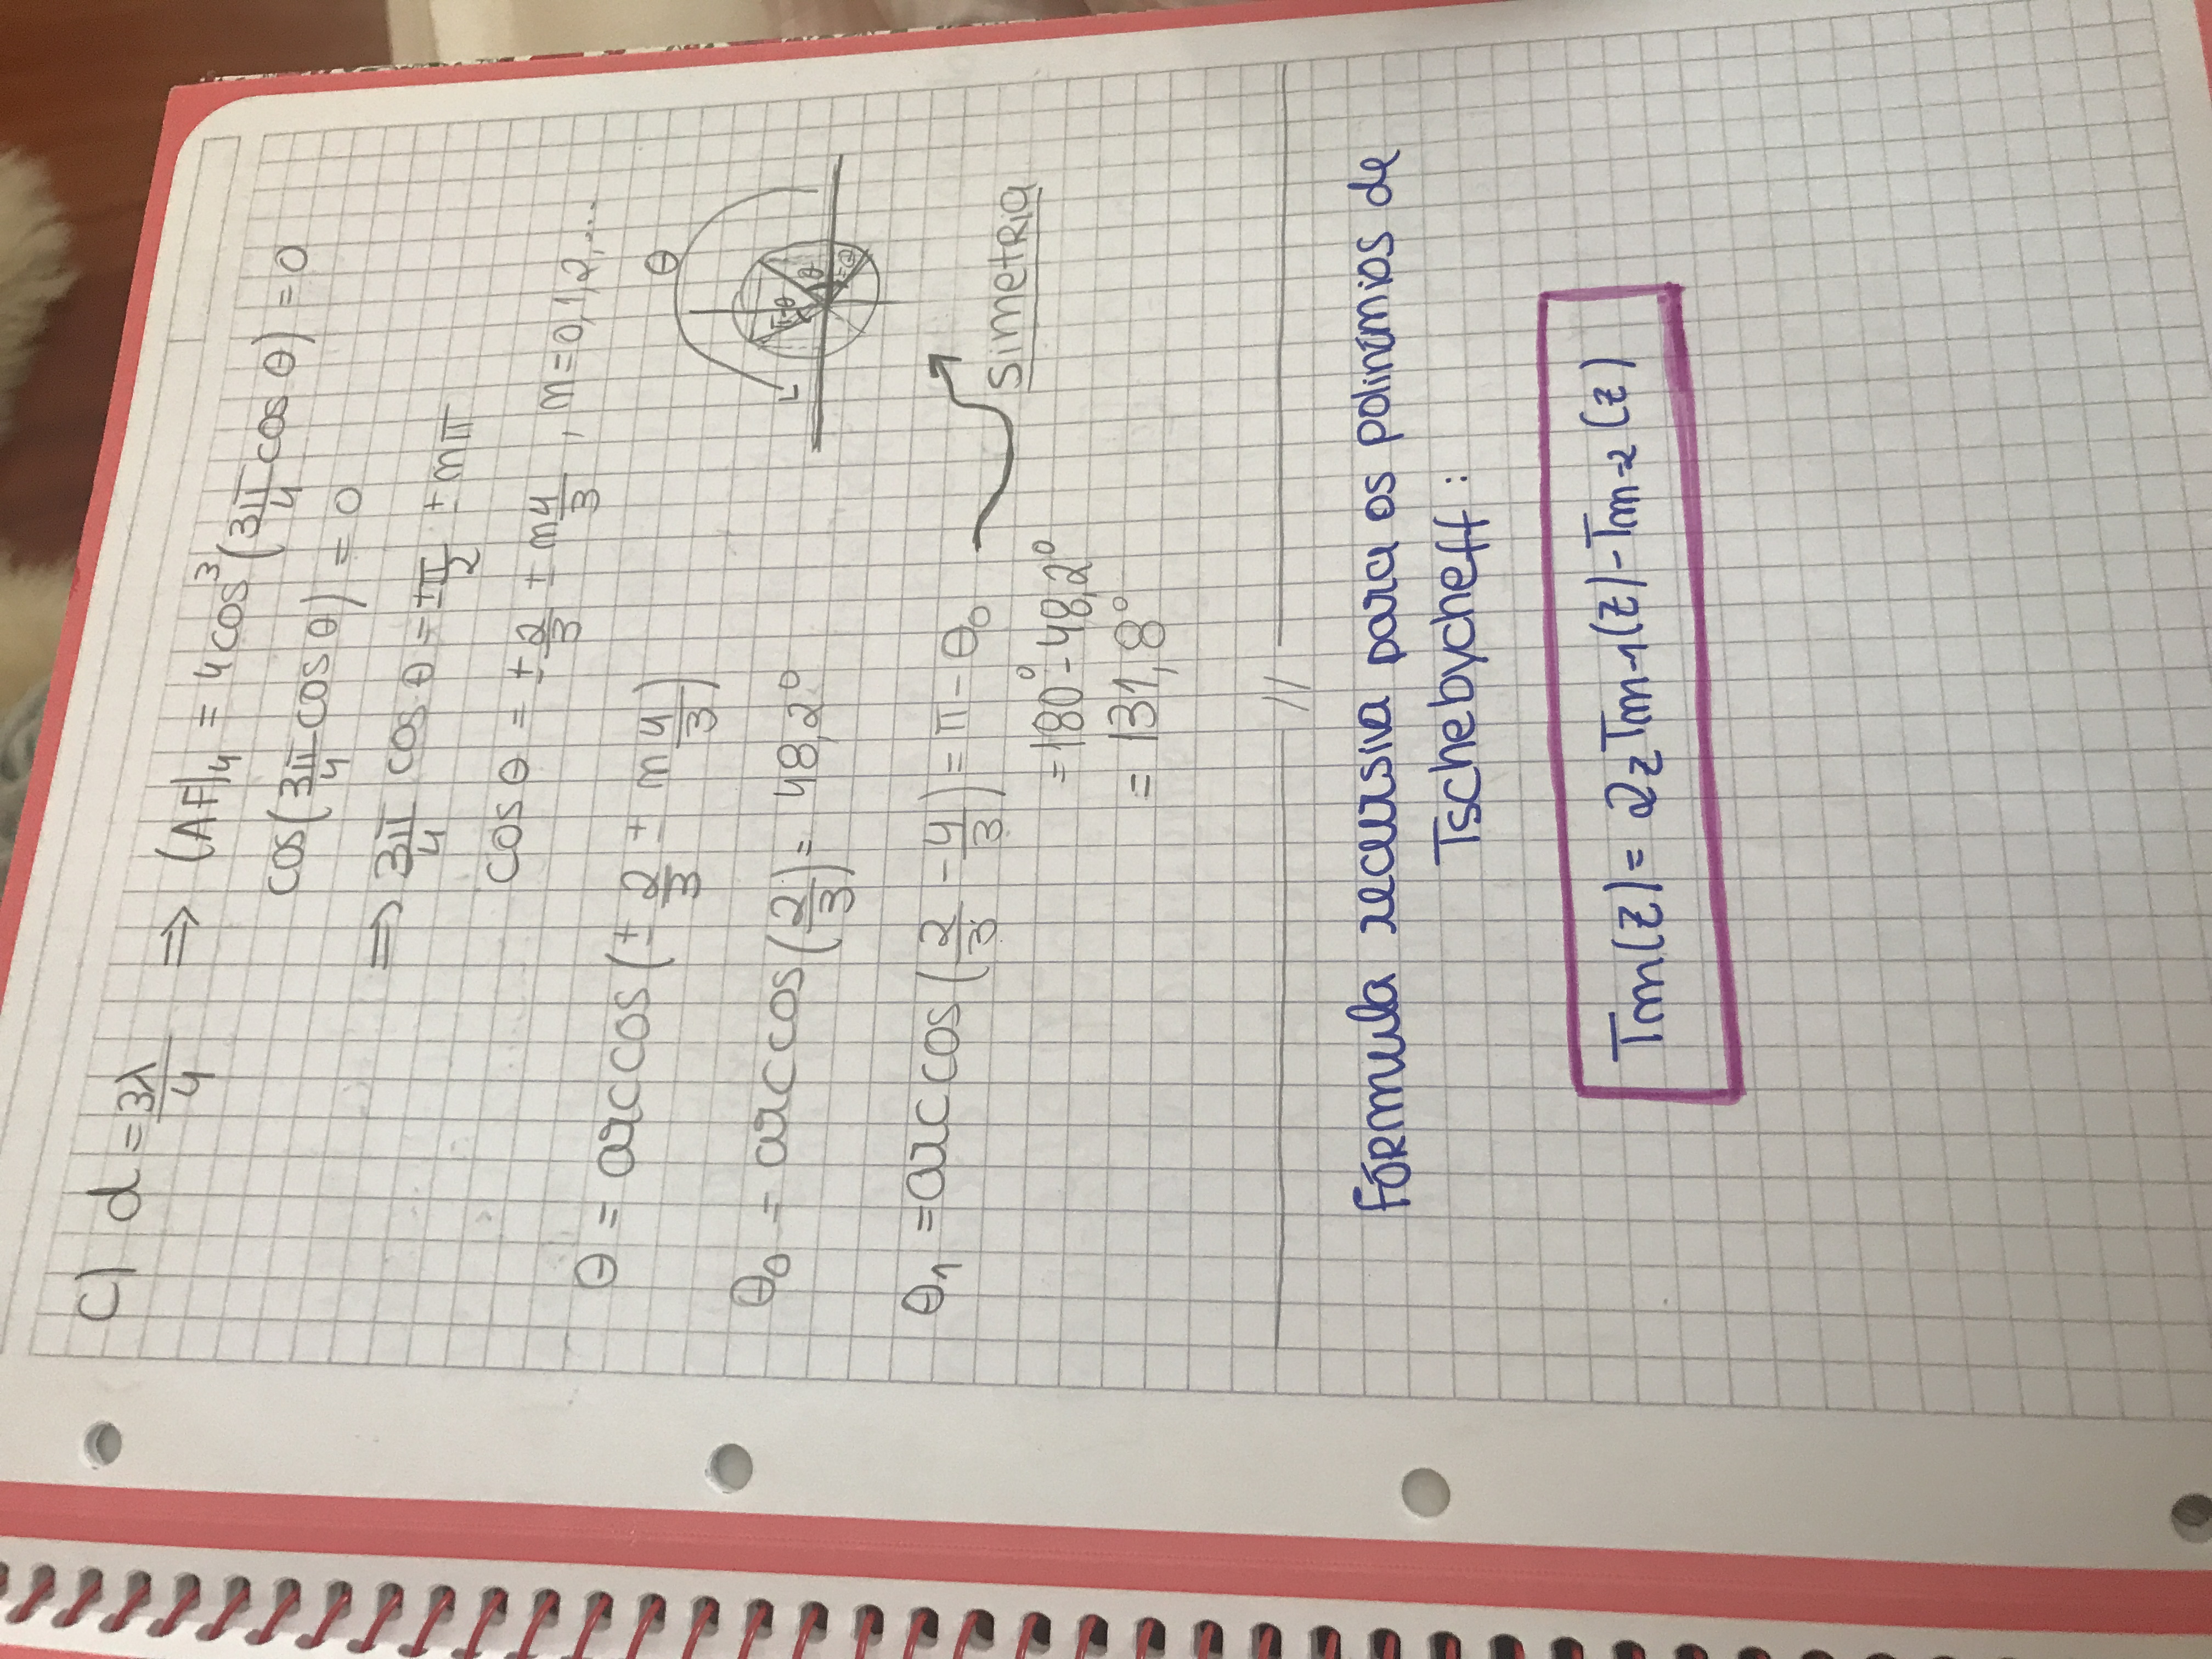 c) d = 3λ/4 ⇒ (AF)₄ = 4cos³(3π/4 cos θ) = 0
cos(3π/4 cos θ) = 0
⇒ 3π/4 cos θ = ±π/2 ± nπ
cos θ = ± 2/3 ± n4/3, n=0,1,2,...
θ = arccos(± 2/3 ± n4/3)
θ
π-θ
θ
θ₀ = arccos(2/3) = 48,2°
θ₁ = arccos(2/3 - 4/3) = π - θ₀
simetria
= 180° - 48,2°
= 131,8°
//
Fórmula recursiva para os polinómios de
Tschebycheff:
Tm(z) = 2z Tm-1(z) - Tm-2(z)